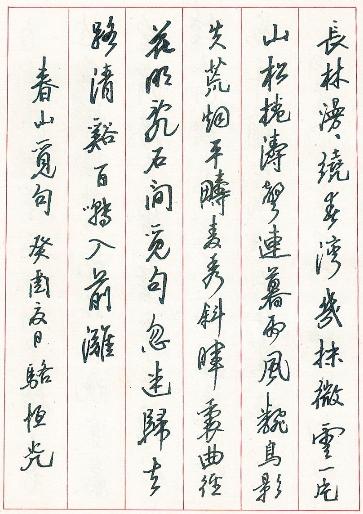 長林漫〻繞春灣幾抹微雲一片
山松捲濤聲連暮雨風飜鳥影
失荒烟平疇麥秀斜暉裏曲徑
花明亂石間覓句忽迷歸去
路清谿百囀入前灘
春山覓句 癸酉夏日 駱恒光